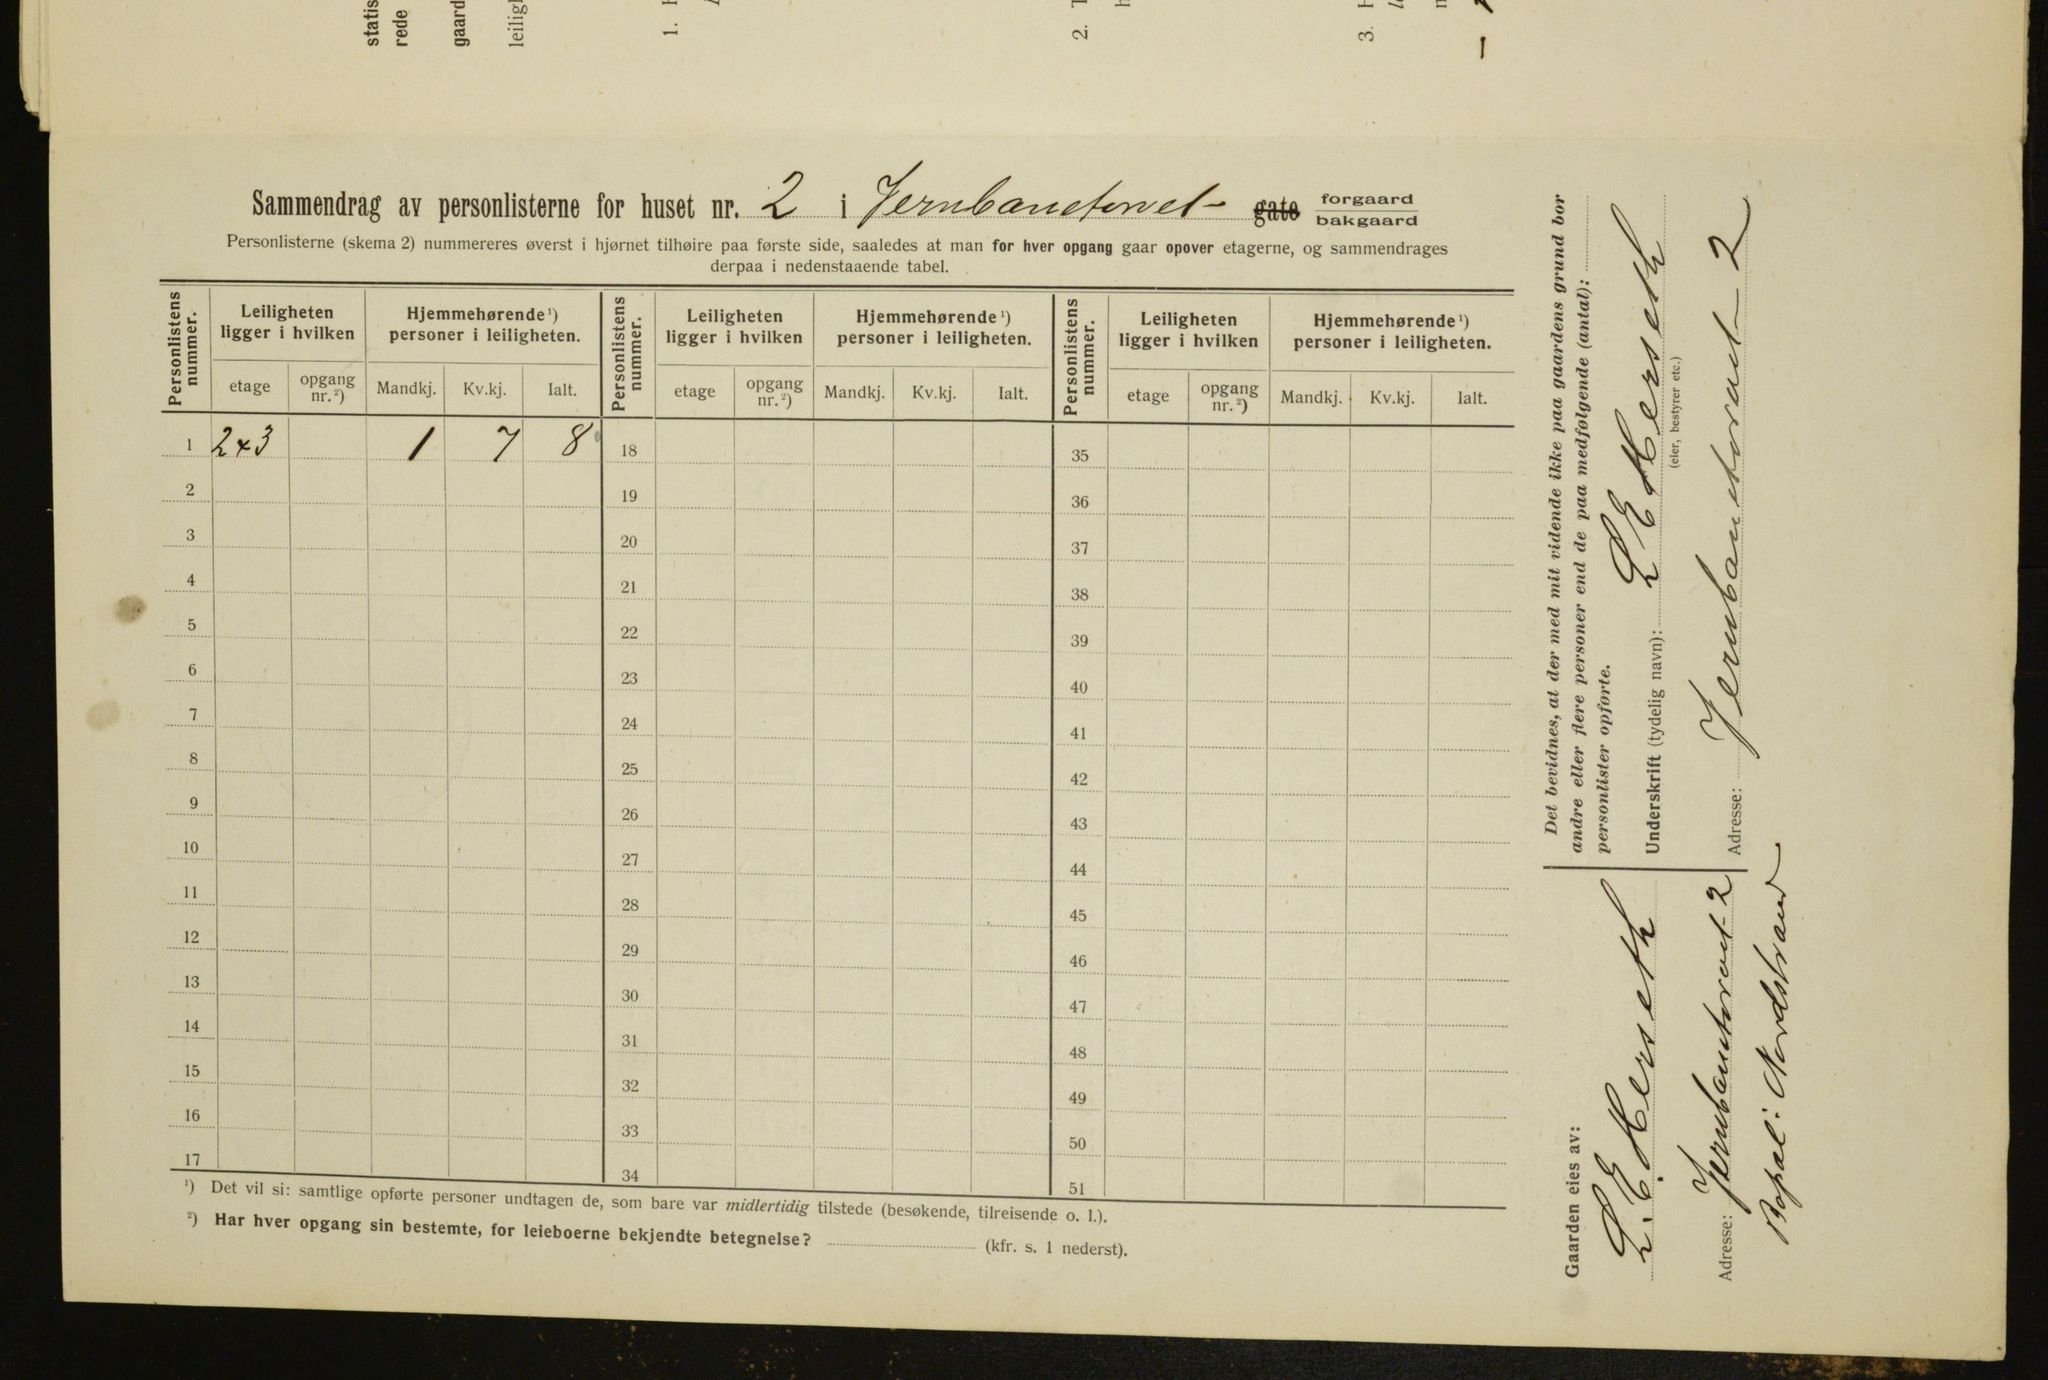 statis
rede
gaard
leiligh
1. H
2. T
h
3. H
le
n
Sammendrag av personlisterne for huset nr. 2 i Jernbanetorvet gate forgaard
bakgaard
Personlisterne (skema 2) nummereres øverst i hjørnet tilhøire paa første side, saaledes at man for hver opgang gaar opover etagerne, og sammendrages
derpaa i nedenstaaende tabel.
Personlistens nummer. Leiligheten ligger i hvilken Hjemmehørende ¹) personer i leiligheten. Personlistens nummer. Leiligheten ligger i hvilken Hjemmehørende ¹) personer i leiligheten. Personlistens nummer. Leiligheten ligger i hvilken Hjemmehørende ¹) personer i leiligheten.
etage opgang nr. ²) Mandkj. Kv.kj. Ialt. etage opgang nr. ²) Mandkj. Kv.kj. Ialt. etage opgang nr. ²) Mandkj. Kv.kj. Ialt.
1 2+3 1 7 8 18 35
2 19 36
3 20 37
4 21 38
5 22 39
6 23 40
7 24 41
8 25 42
9 26 43
10 27 44
11 28 45
12 29 46
13 30 47
14 31 48
15 32 49
16 33 50
17 34 51
¹) Det vil si: samtlige opførte personer undtagen de, som bare var midlertidig tilstede (besøkende, tilreisende o. l.).
²) Har hver opgang sin bestemte, for leieboerne bekjendte betegnelse? (kfr. s. 1 nederst).
Gaarden eies av:
L. E. Herseth
Adresse: Jernbanetorvet 2
Bopæl: Nordstrand
Det bevidnes, at der med mit vidende ikke paa gaardens grund bor
andre eller flere personer end de paa medfølgende (antal):
personlister opførte.
Underskrift (tydelig navn): L E Herseth
(eier, bestyrer etc.)
Adresse: Jernbanetorvet 2